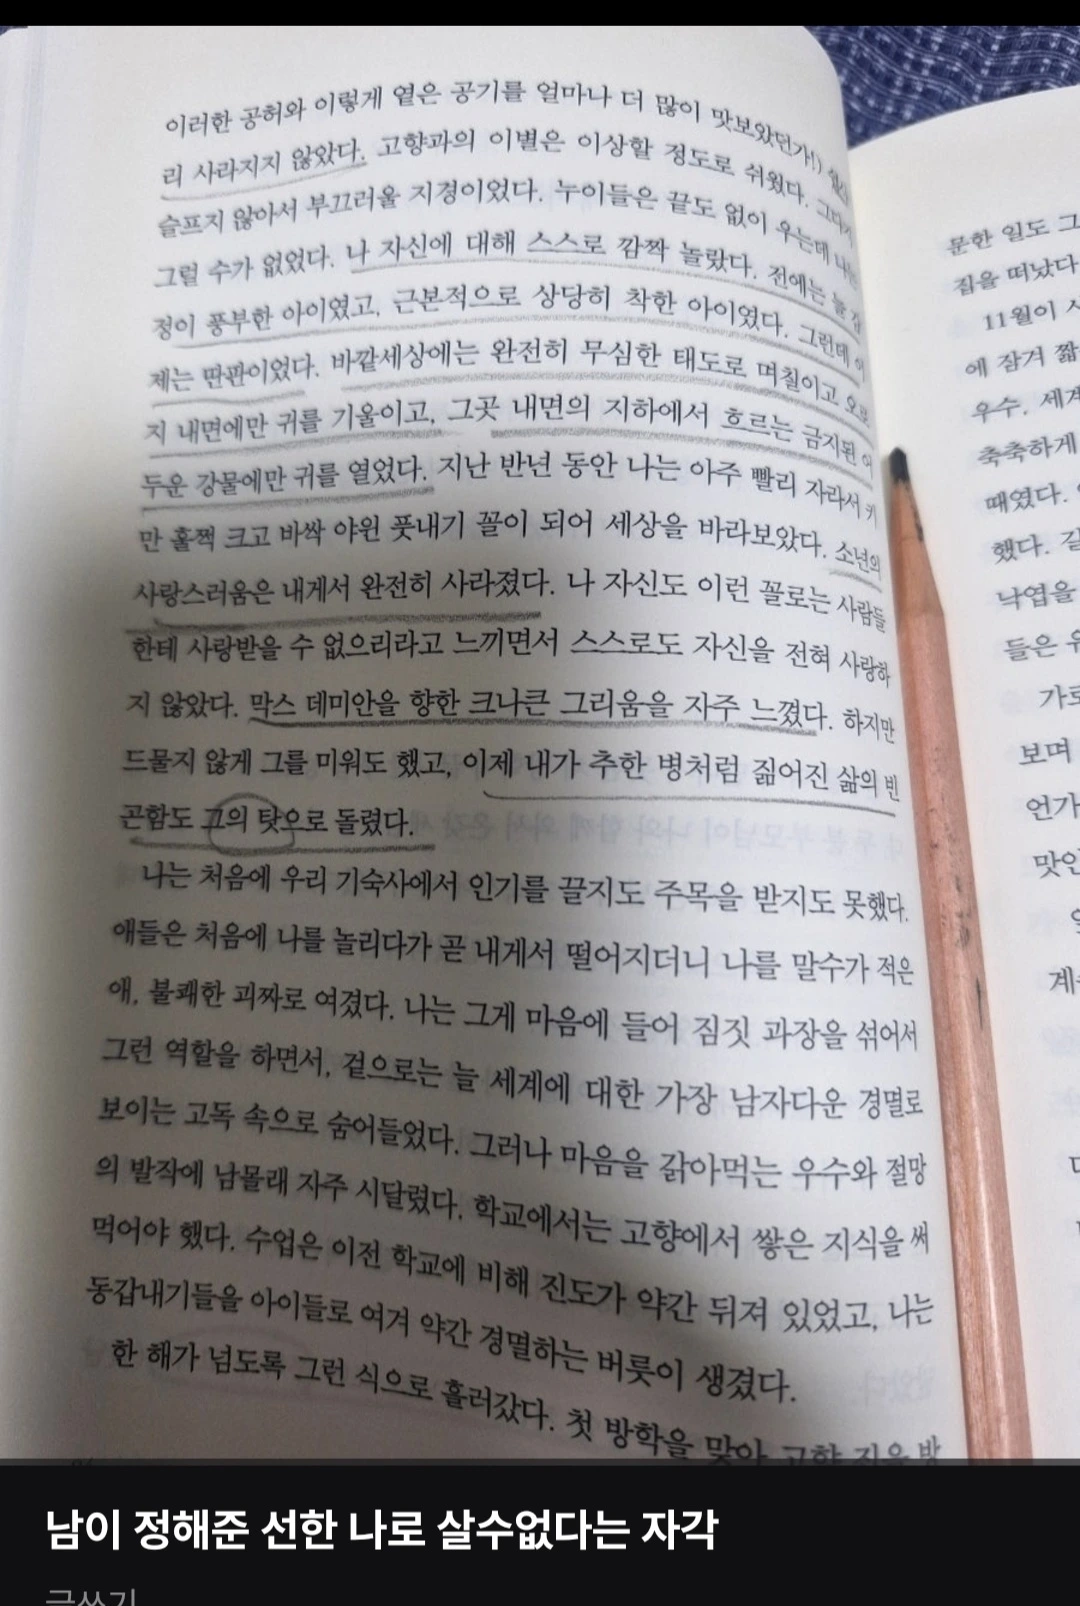 이러한 공허와 이렇게 옅은 공기를 얼마나 더 많이 맛보았던가!)
리 사라지지 않았다. 고향과의 이별은 이상할 정도로 쉬웠다. 그다지
슬프지 않아서 부끄러울 지경이었다. 누이들은 끝도 없이 우는데 나는
그럴 수가 없었다. 나 자신에 대해 스스로 깜짝 놀랐다. 전에는 늘 감
정이 풍부한 아이였고, 근본적으로 상당히 착한 아이였다. 그런데 이
제는 딴판이었다. 바깥세상에는 완전히 무심한 태도로 며칠이고 오로
지 내면에만 귀를 기울이고, 그곳 내면의 지하에서 흐르는 금지된 어
두운 강물에만 귀를 열었다. 지난 반년 동안 나는 아주 빨리 자라서 키
만 훌쩍 크고 바싹 야윈 풋내기 꼴이 되어 세상을 바라보았다. 소년의
사랑스러움은 내게서 완전히 사라졌다. 나 자신도 이런 꼴로는 사람들
한테 사랑받을 수 없으리라고 느끼면서 스스로도 자신을 전혀 사랑하
지 않았다. 막스 데미안을 향한 크나큰 그리움을 자주 느꼈다. 하지만
드물지 않게 그를 미워도 했고, 이제 내가 추한 병처럼 짊어진 삶의 빈
곤함도 그의 탓으로 돌렸다.
나는 처음에 우리 기숙사에서 인기를 끌지도 주목을 받지도 못했다.
애들은 처음에 나를 놀리다가 곧 내게서 떨어지더니 나를 말수가 적은
애, 불쾌한 괴짜로 여겼다. 나는 그게 마음에 들어 짐짓 과장을 섞어서
그런 역할을 하면서, 겉으로는 늘 세계에 대한 가장 남자다운 경멸로
보이는 고독 속으로 숨어들었다. 그러나 마음을 갉아먹는 우수와 절망
의 발작에 남몰래 자주 시달렸다. 학교에서는 고향에서 쌓은 지식을 써
먹어야 했다. 수업은 이전 학교에 비해 진도가 약간 뒤져 있었고, 나는
동갑내기들을 아이들로 여겨 약간 경멸하는 버릇이 생겼다.
한 해가 넘도록 그런 식으로 흘러갔다. 첫 방학을 맞아 고향
문한 일도 그
집을 떠났다
11월이 시
에 잠겨 짧
우수, 세계
축축하게
때였다.
했다. 길
낙엽을
들은
가로
보며
언가
맛인
남이 정해준 선한 나로 살수없다는 자각
글쓰기